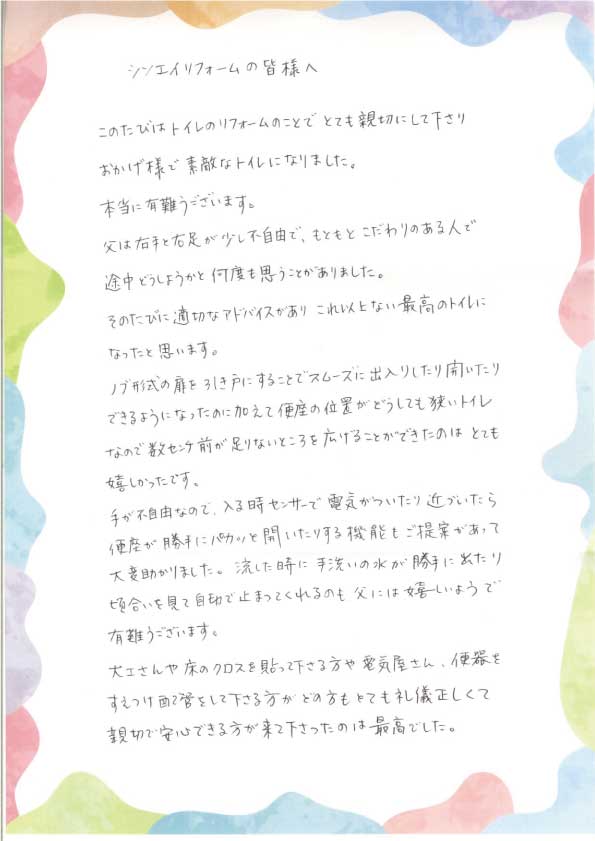 シンエイリフォームの皆様へ
このたびはトイレのリフォームのことでとても親切にして下さり
おかげ様で素敵なトイレになりました。
本当に有難うございます。
父は右手と右足が少し不自由で、もともとこだわりのある人で
途中どうしようかと何度も思うことがありました。
そのたびに適切なアドバイスがありこれ以上ない最高のトイレに
なったと思います。
ノブ形式の扉を引き戸にすることでスムーズに出入りしたり開いたり
できるようになったのに加えて便座の位置がどうしても狭いトイレ
なので数センチ前が足りないところを広げることができたのはとても
嬉しかったです。
手が不自由なので、入る時センサーで電気がついたり近づいたら
便座が勝手にパカッと開いたりする機能もご提案があって
大変助かりました。流した時に手洗いの水が勝手に出たり
頃合いを見て自動で止まってくれるのも父には嬉しいようで
有難うございます。
大工さんや床のクロスを貼って下さる方や電気屋さん、便器を
すえつけ配管をして下さる方がどの方もとても礼儀正しくて
親切で安心できる方が来て下さったのは最高でした。